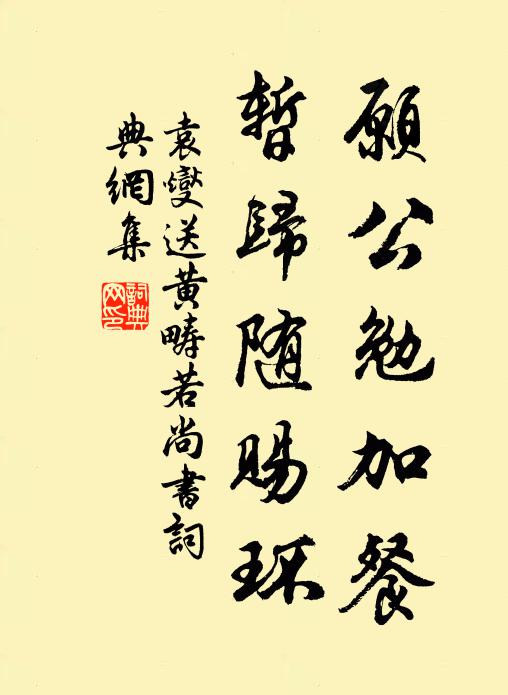 願公勉加餐
暫歸随賜环
袁燮送黃疇若尚書詞
典網集
詞典网印